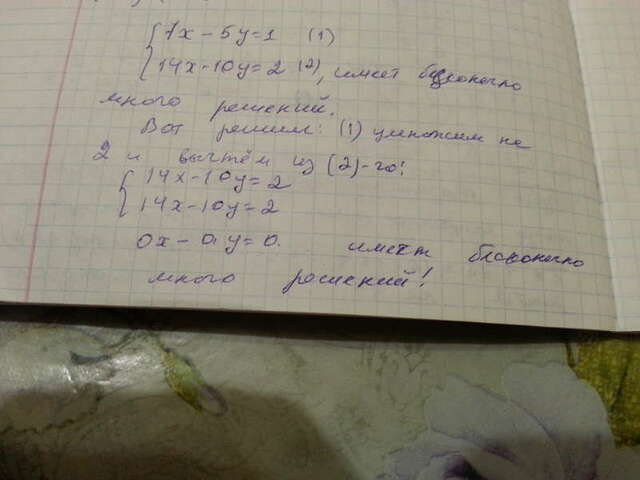 {7x - 5y = 1 (1)
{14x - 10y = 2 (2), имеет бесконечно
много решений.
Вот решим: (1) умножим на
2 и вычтем из (2)-го!
{14x - 10y = 2
{14x - 10y = 2
0x - 0y = 0. имеет бесконечно
много решений!